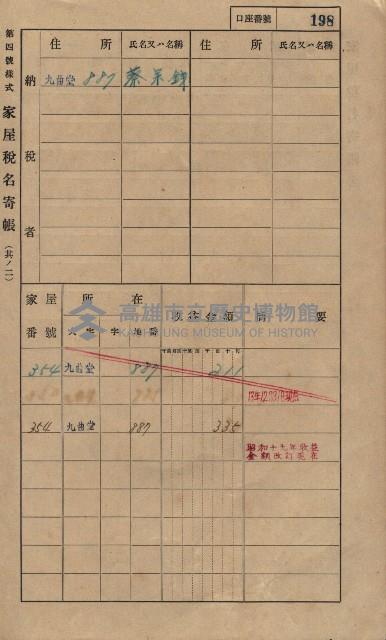 口座番號 198
第四號樣式 家屋稅名寄帳（其ノ二）
住所 氏名又ハ名稱 住所 氏名又ハ名稱
納稅者
九曲堂 887 蔡
家屋番號 所在 收住金額 摘要
大字 字 地番
高雄市立歷史博物館
KAOHSIUNG MUSEUM OF HISTORY
354 九曲堂 887 211
354 九曲堂 887 335
昭和十九年收益
金額改訂現在